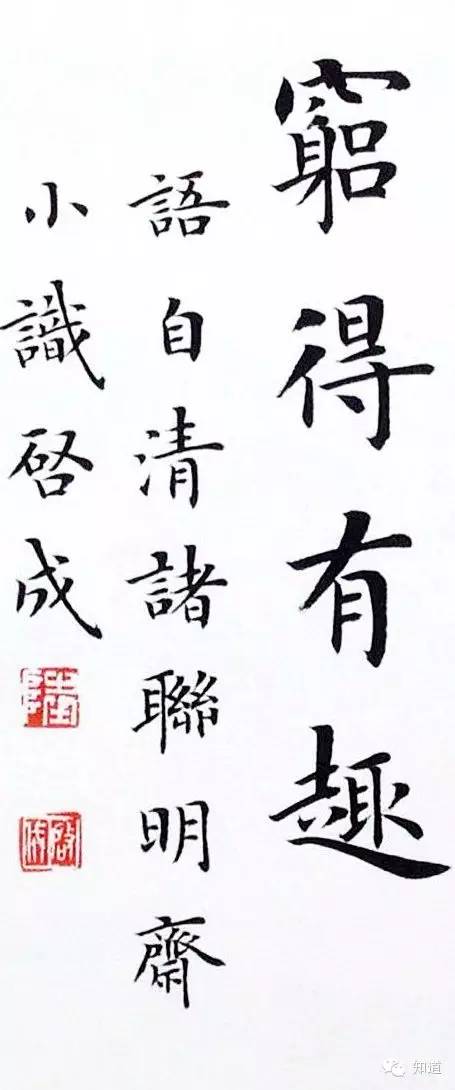 窮得有趣
語自清諸聯明齋
小識啓成
知道